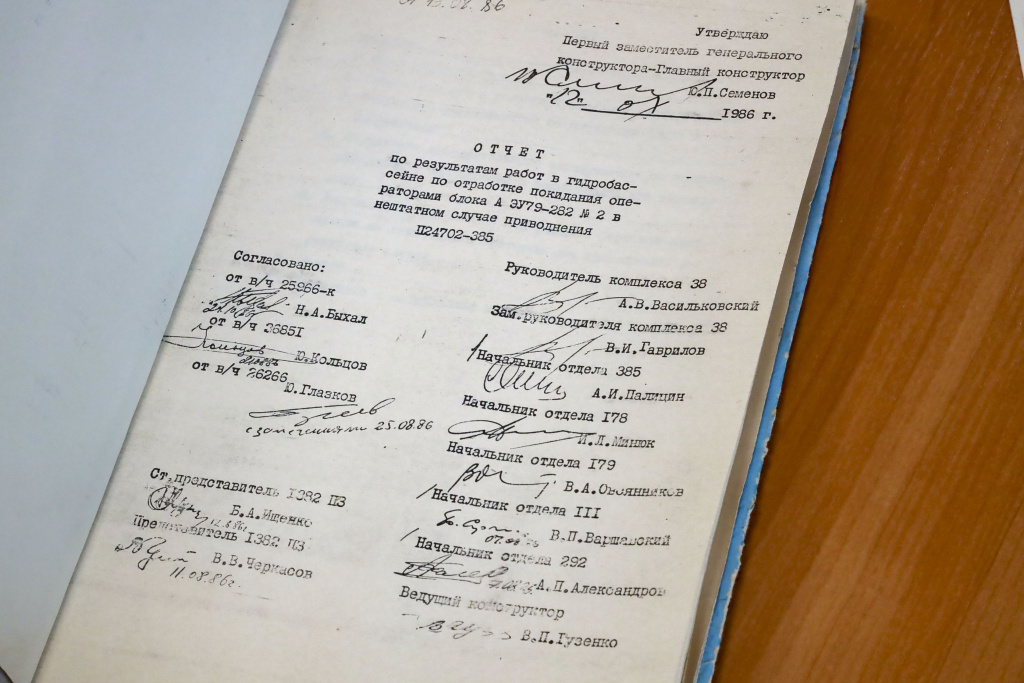 от 13.08.86
Утверждаю
Первый заместитель генерального
конструктора-Главный конструктор
Ю.П.Семенов
"12" 08 1986 г.
ОТЧЕТ
по результатам работ в гидробас-
сейне по отработке покидания опе-
раторами блока А ЭУ79-282 № 2 в
нештатном случае приводнения
П24702-385
Согласовано:
от в/ч 25966-к
Н.А.Быхал
от в/ч 3685I
Ю.Кольцов
от в/ч 26266
Ю.Глазков
с замечаниями 25.08.86
Ст.представитель I382 ПЗ
Б.А.Ищенко
12.8.86
Представитель I382 ПЗ
В.В.Черкасов
11.08.86г.
Руководитель комплекса 38
А.В.Васильковский
Зам.руководителя комплекса 38
В.И.Гаврилов
Начальник отдела 385
А.И.Палицин
Начальник отдела I78
И.Л.Минюк
Начальник отдела I79
В.А.Овсянников
Начальник отдела III
В.П.Варшавский
07.08.86
Начальник отдела 292
А.П.Александров
Ведущий конструктор
В.П.Гузенко